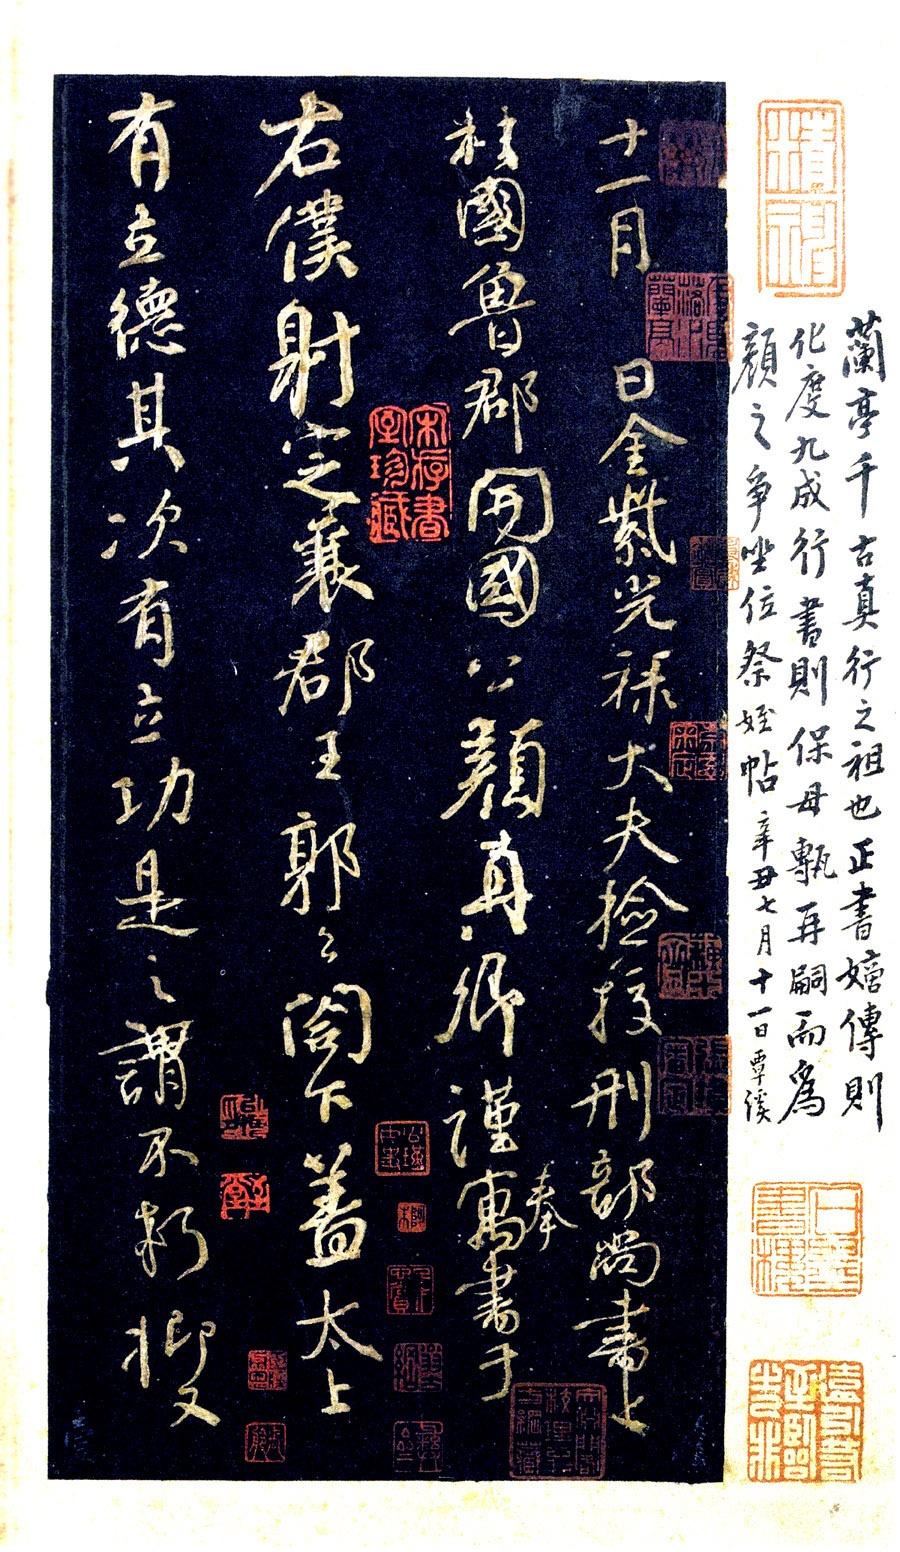 蘭亭千古真行之祖也正書嫡傳則
化度九成行書則保母甎再嗣而為
顏之爭坐位祭姪帖辛丑七月十一日覃溪
十一月　日金紫光祿大夫撿挍刑部尚書上
柱國魯郡開國公顏真卿謹奉寓書于
右僕射定襄郡王郭公閤下蓋太上
有立德其次有立功是之謂不朽抑又
宋存書室珍藏